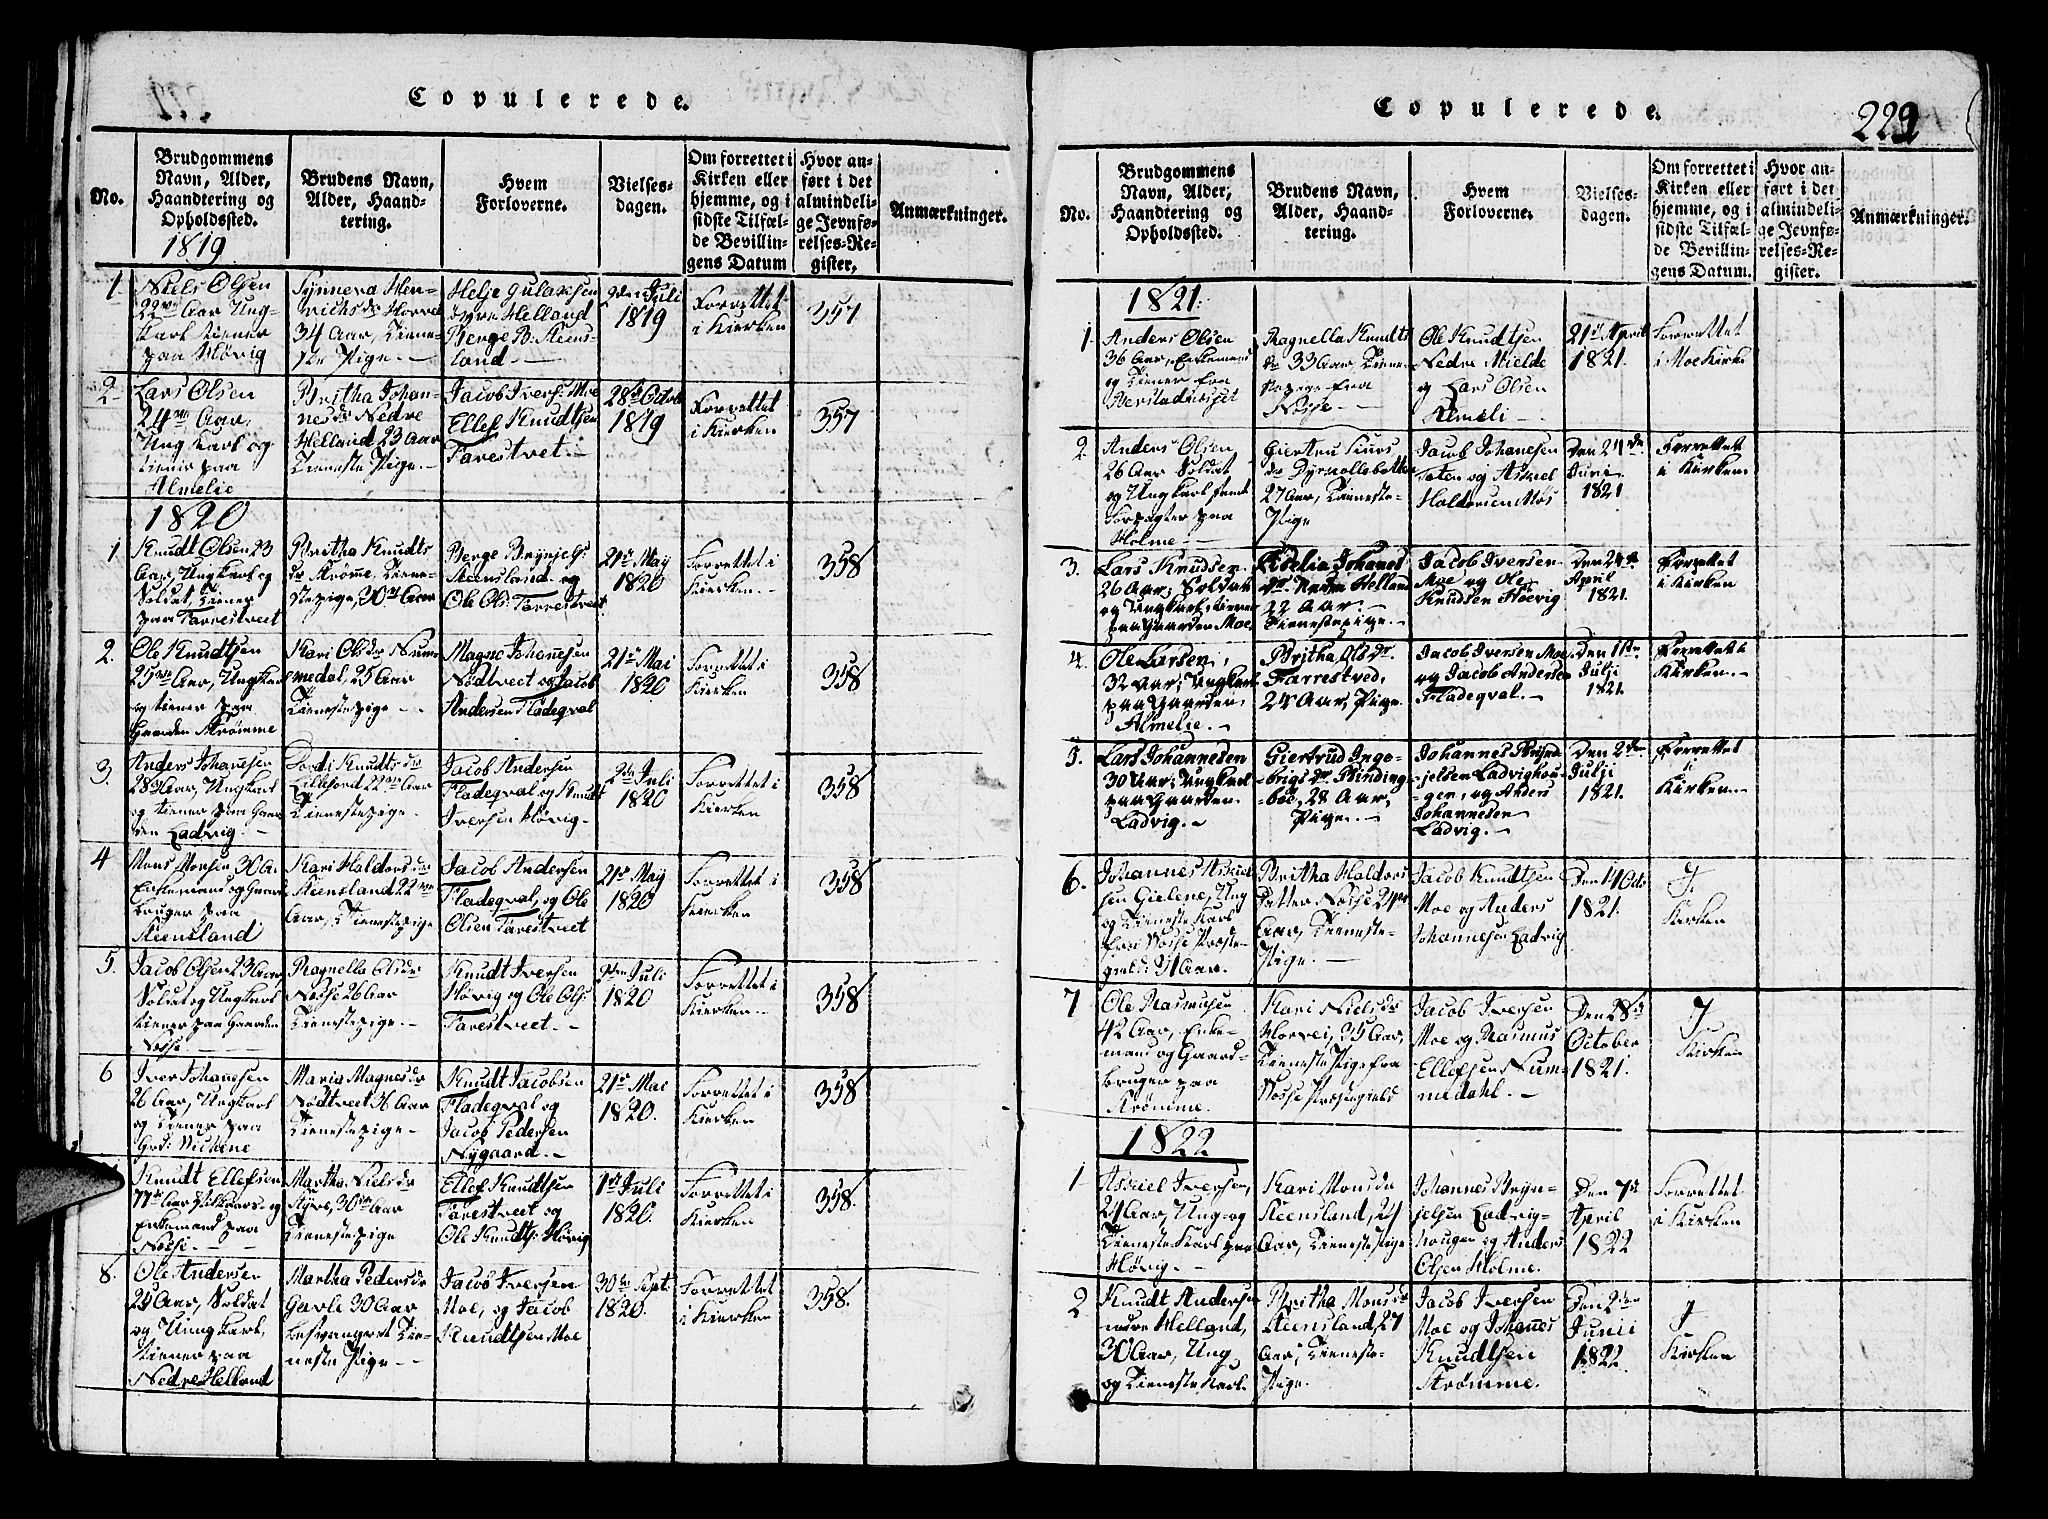 Copulerede.
No.
Brudgommens
Navn, Alder,
Haandtering og
Opholdssted.
Brudens Navn,
Alder, Haand-
tering.
Hvem
Forloverne.
Vielses-
dagen.
Om forrettet i
Kirken eller
hjemme, og i
sidste Tilfæl-
de Bevillin-
gens Datum
Hvor an-
ført i det
almindeli-
ge Jevnfø-
relses-Re-
gister,
Anmærkninger.
1819
1
Niels Olsen
22 Aar Ung-
karl tiener
paa Hövig
Synneva Hen-
richsdr
34 Aar, Tiene-
ste Pige. —
Helje
Helland
Berge B: Steens-
land —
2den Juli
1819
Forrettet
i Kierken
357
2
Lars Olsen
24 Aar,
Ung karl og
tiener paa
Almelie
Britha Johan-
nesdr Nedre
Helland 23 Aar
Tieneste Pige. —
Jacob Ivers: Moe
Ellef Knudtsen
Farestvet. —
28de Octob
1819
Forrettet
i Kierken
357
1820
1
Knudt Olsen 23
Aar, Ungkarl og
Soldat, tiener
paa Farrestveet
Britha Knudts
dr Strömme, Tiene-
stepige, 30 Aar
Berge Brynjels:
Steensland og
Ole Ols: Farrestveet
21de May
1820
Forrettet i
Kierken. —
358
2.
Ole Knudtsen
25 Aar, Ungkarl
og tiener paa
Gaarden Strömme
Kari Olsdr Num-
medal, 25 Aar
Tienestepige. —
Magne Johanesen
Nödtveet og Jacob
Andersen Fladeqval
21de Mai
1820
Forrettet i
Kierken
358
3.
Anders Johanesen
28 Aar, Ungkarl
og tiener paa Gaar
den Ladvig. —
Knudtsdr
22 Aar
Tienestepige. —
Jacob Andersen
Fladeqval og Knudt
Iversen Hövig —
2den Juli
1820
Forrettet i
Kierken
358
4
Mons Monsen 30 A.
Enkemand og Gaard
bruger paa
Steensland
Kari Haldorsdr
Steensland 22
Aar, Tienestepige
Jacob Andersen
Fladeqval, og Ole
Olsen Farestveet
21de May
1820
Forrettet i
Kierken
358
5.
Jacob Olsen 23 Aar,
Soldat og Ungkarl
tiener paa Gaarden
Nosse.
Ragnella Olsdr
Nosse 26 Aar
Tienestepige. —
Knudt Iversen
Hövig og Ole Ols:
Farestveet. —
2den Juli
1820
Forrettet i
Kierken.
358
6
Iver Johanesen
26 Aar, Ungkarl
og tiener paa
Maria Magnesdr
Nödtveet 36 Aar
Tienestepige. —
Knudt Jacobsen
Fladeqval og
Jacob Pedersen
Nygaard. —
21de Mai
1820.
Forrettet i
Kierken
358
Knudt Ellefsen
77 Aar
Enkemand paa
Nosse. —
Martha Nielsdr
30 Aar
Tienestepige
Ellef Knudtsen
Farestveet og
Ole Knudts: Hövig
1ste Juli
1820.
Forrettet i
Kierken
358.
8.
Ole Andersen
25 Aar, Soldat
og Ung karl,
tiener paa
Nedre Helland
Martha Pedersdr
Garle 30 Aar
besvangret Tie-
neste Pige. —
Jacob Iversen
Moe, og Jacob
Knudtsen Moe
30te Sept:
1820.
Forrettet
i Kierken
358.
Copulerede.
No.
Brudgommens
Navn, Alder,
Haandtering og
Opholdssted.
Brudens Navn,
Alder, Haand-
tering.
Hvem
Forloverne.
Vielses-
dagen.
Om forrettet i
Kirken eller
hjemme, og i
sidste Tilfæl-
de Bevillin-
gens Datum.
Hvor an-
ført i det
almindeli-
ge Jevnfø-
relses-Re-
gister.
Anmærkninger.
1821.
1.
Anders Olsen
36 Aar, Enkemand
og tiener fra
Ragnella Knudts
dr 33 Aar, Tiene-
stepige fra
Nosse. —
Ole Knudtsen
Nedre Mielde
og Lars Olsen
Almeli —
21de April
1821.
Forrettet
i Moe Kirke
2
Anders Olsen
26 Aar Soldat
og Ungkarl samt
Forpagter paa
Holme. —
Giertru
dr Dyrvollebotten
27 Aar, Tieneste-
Pige
Jacob Johanesen
og Askiel
Haldorsen
Den 24de
Juni
1821
Forrettet
i Kirken
3.
Lars Knudsen
26 Aar, Soldat
og Ungkarl, tiener
paa Gaarden Moe,
Johanes
dr Nedre Helland
22 Aar. —
Tienestepige. —
Jacob Iversen
Moe og Ole
Knudsen Höevig
Den 24de
April
1821.
Forrettet
i Kirken
4.
Ole Larsen,
32 Aar, Ungkarl
paa Gaarden
Almelie. —
Britha Olsdr
Farrestved,
24 Aar, Pige.
Jacob Iversen Moe
og Jacob Andersen
Fladeqval. —
Den 1ste
Julji
1821.
Forrettet i
Kirken. —
5.
Lars Johannesen
30 Aar, Ungkarl
paa Gaarden
Ladvig. —
Giertrud Inge-
brigsdr Binding-
böe, 28 Aar,
Pige. —
Johannes Brijn-
jelsen Ladvighou-
gen, og Anders
Johannesen
Ladvig. —
Den 2den
Julji
1821.
Forrettet
i
Kirken. —
6.
Johannes Askiel
sen Gielene, Ung
og Tieneste Karl
fra Vosse Præste-
gield: 31 Aar.
Britha Haldors
Datter Nosse 24
Aar, Tieneste-
Pige. —
Jacob Knudtsen
Moe og Anders
Johannesen Ladvig
Den 14 Octo
1821.
I
Kirken
7
Ole Rasmusen
42 Aar, Enke-
mand og Gaard-
bruger paa
Strömme.
Kari Nielsdr
Horvei, 35 Aar,
Tieneste Pige fra
Vosse Præstegield
Jacob Iversen
Moe og Rasmus
Ellefsen Num-
medahl. —
Den 28de
October
1821.
I
Kirken
1822
1
Askiel Iversen,
24 Aar, Ung- og
Tieneste Karl paa
Hövig. —
Kari Monsdr
Steensland, 24
Aar, Tieneste Pige
Johannes Bryn-
jelsen Ladvig-
hougen og Anders
Olsen Holme.
Den 7de
April
1822
Forrettet
i Kirken
2
Knudt Andersen
nedre Helland,
30 Aar, Ung
og Tieneste Karl.
Britha Monsdr
Steensland, 27
Aar, Tieneste-
Pige.
Jacob Iversen
Moe og Johanes
Knudtsen
Strömme.
Den 2den
Junii
1822
I
Kirken